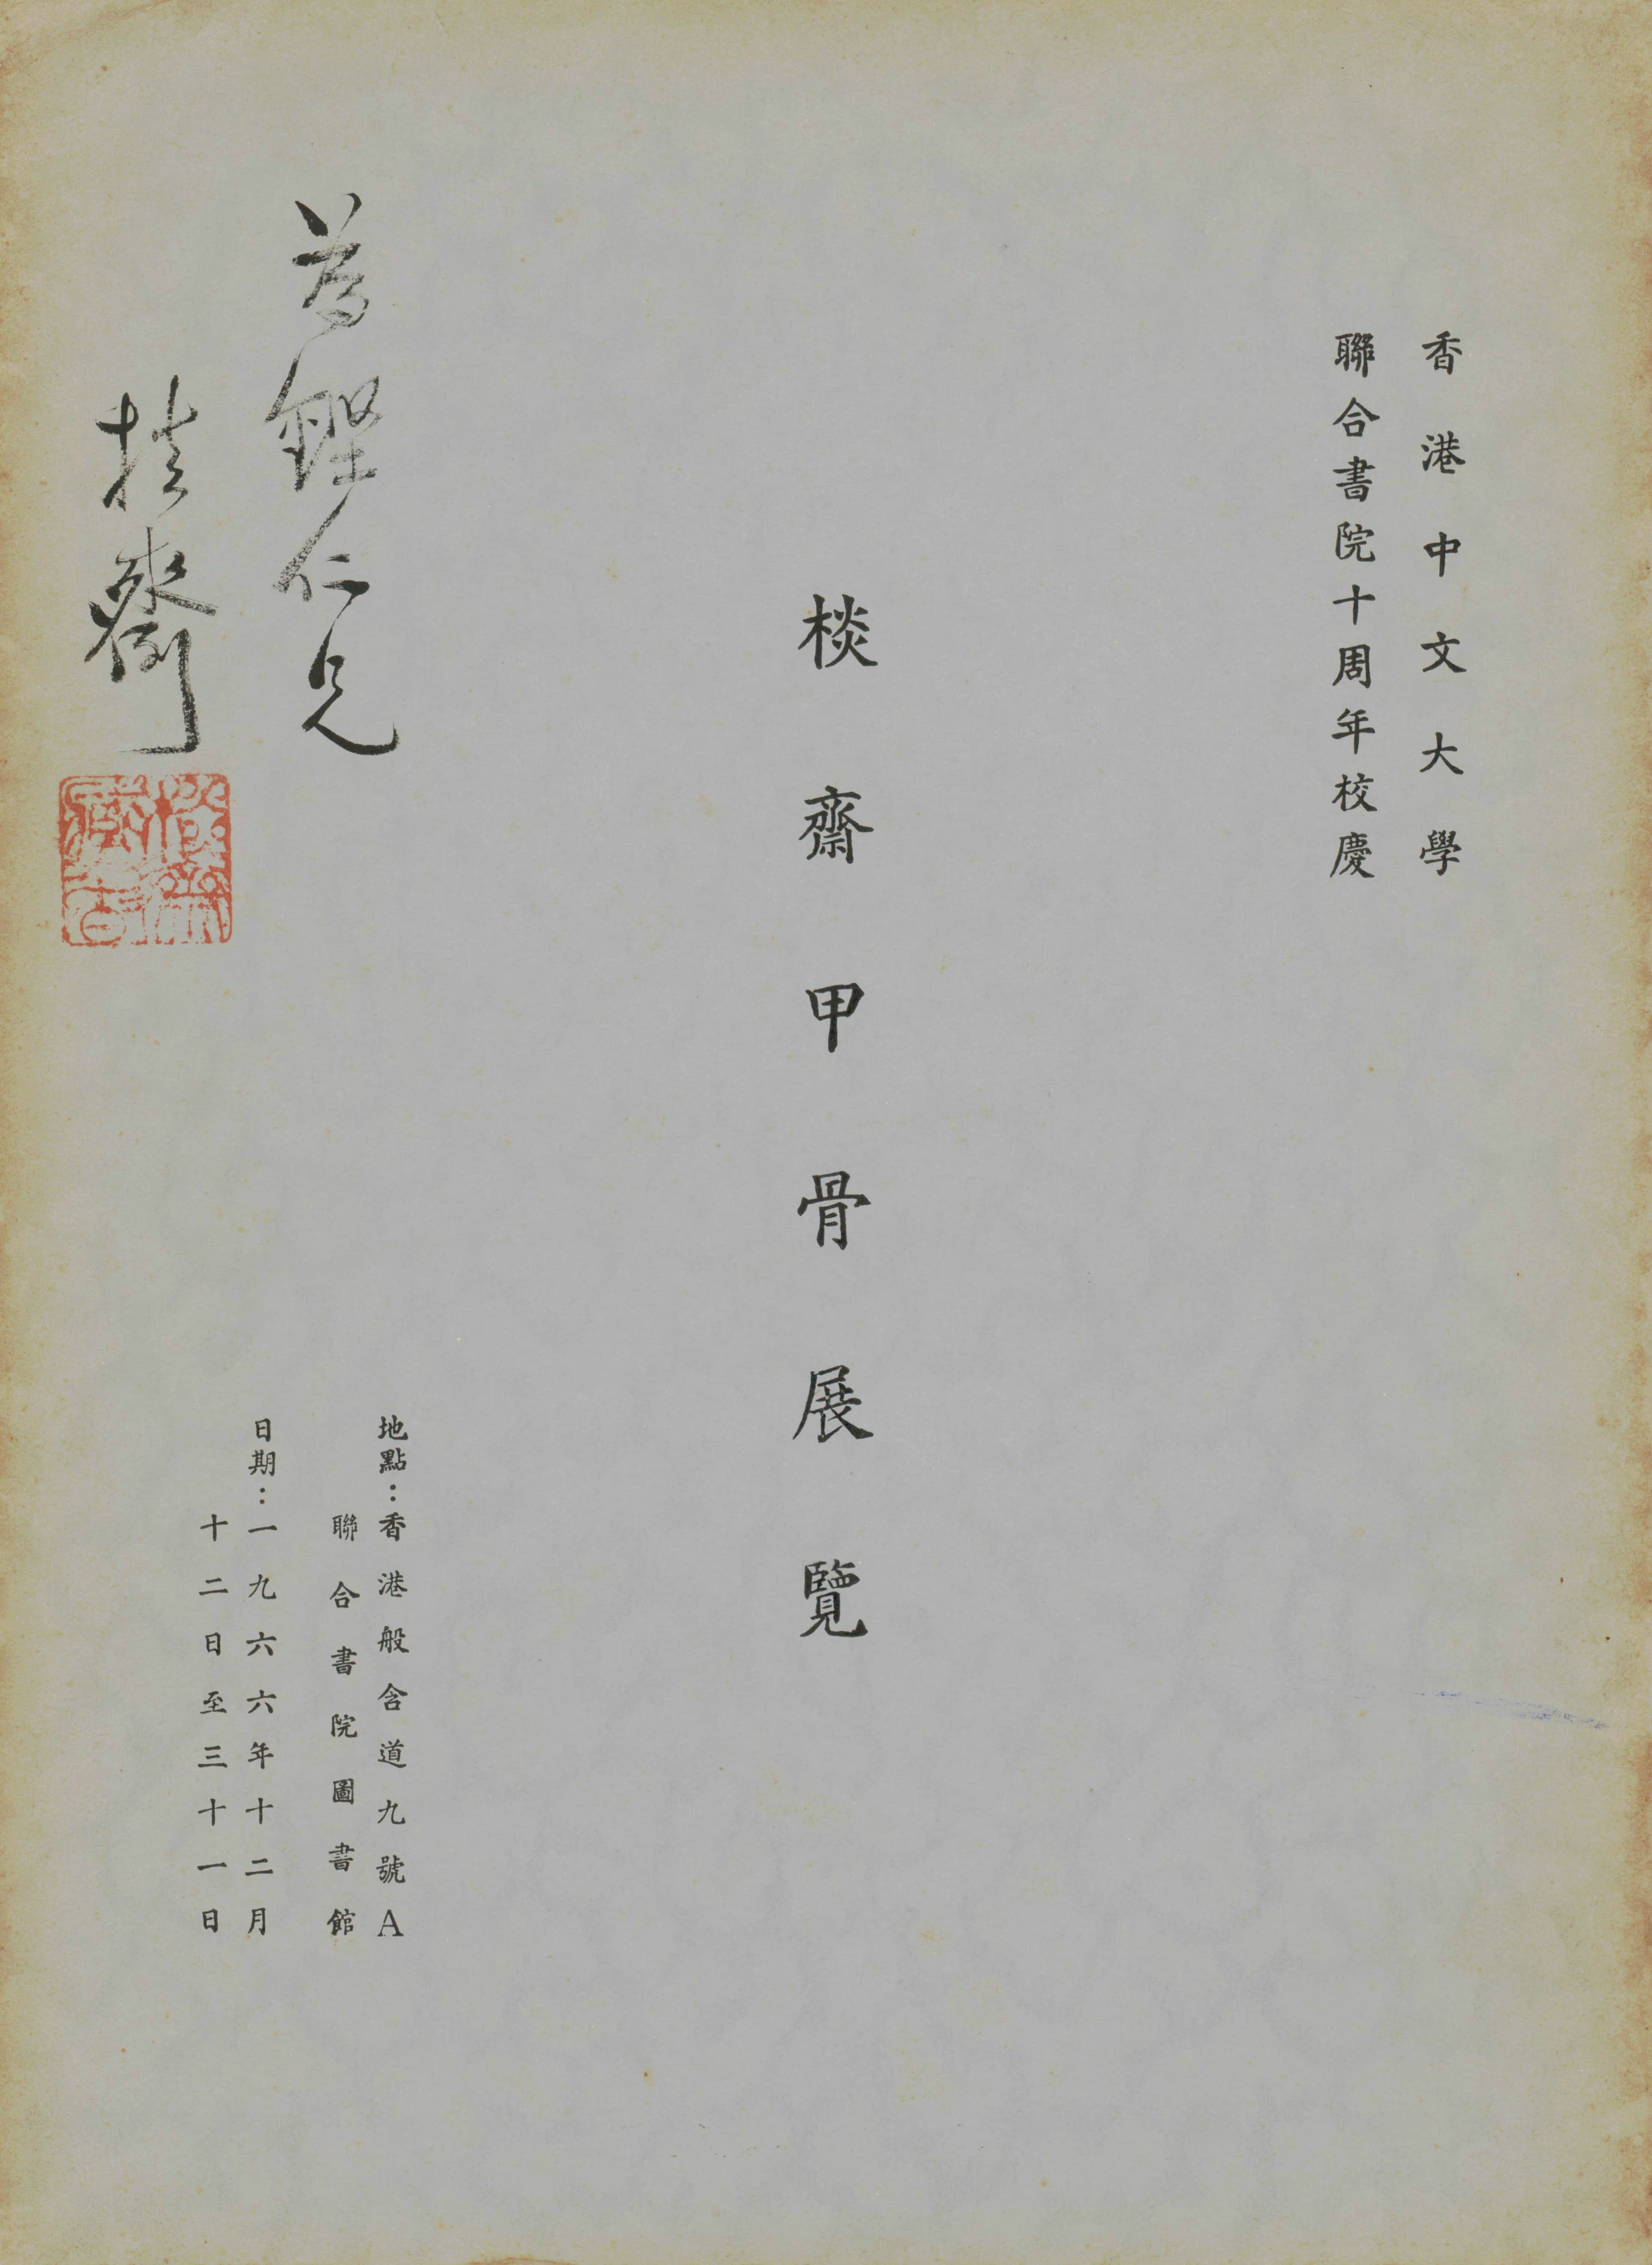 香港中文大學
聯合書院十周年校慶
棪齋甲骨展覽
地點：香港般含道九號A
聯合書院圖書館
日期：一九六六年十二月
十二日至三十一日
仁兄
棪齋